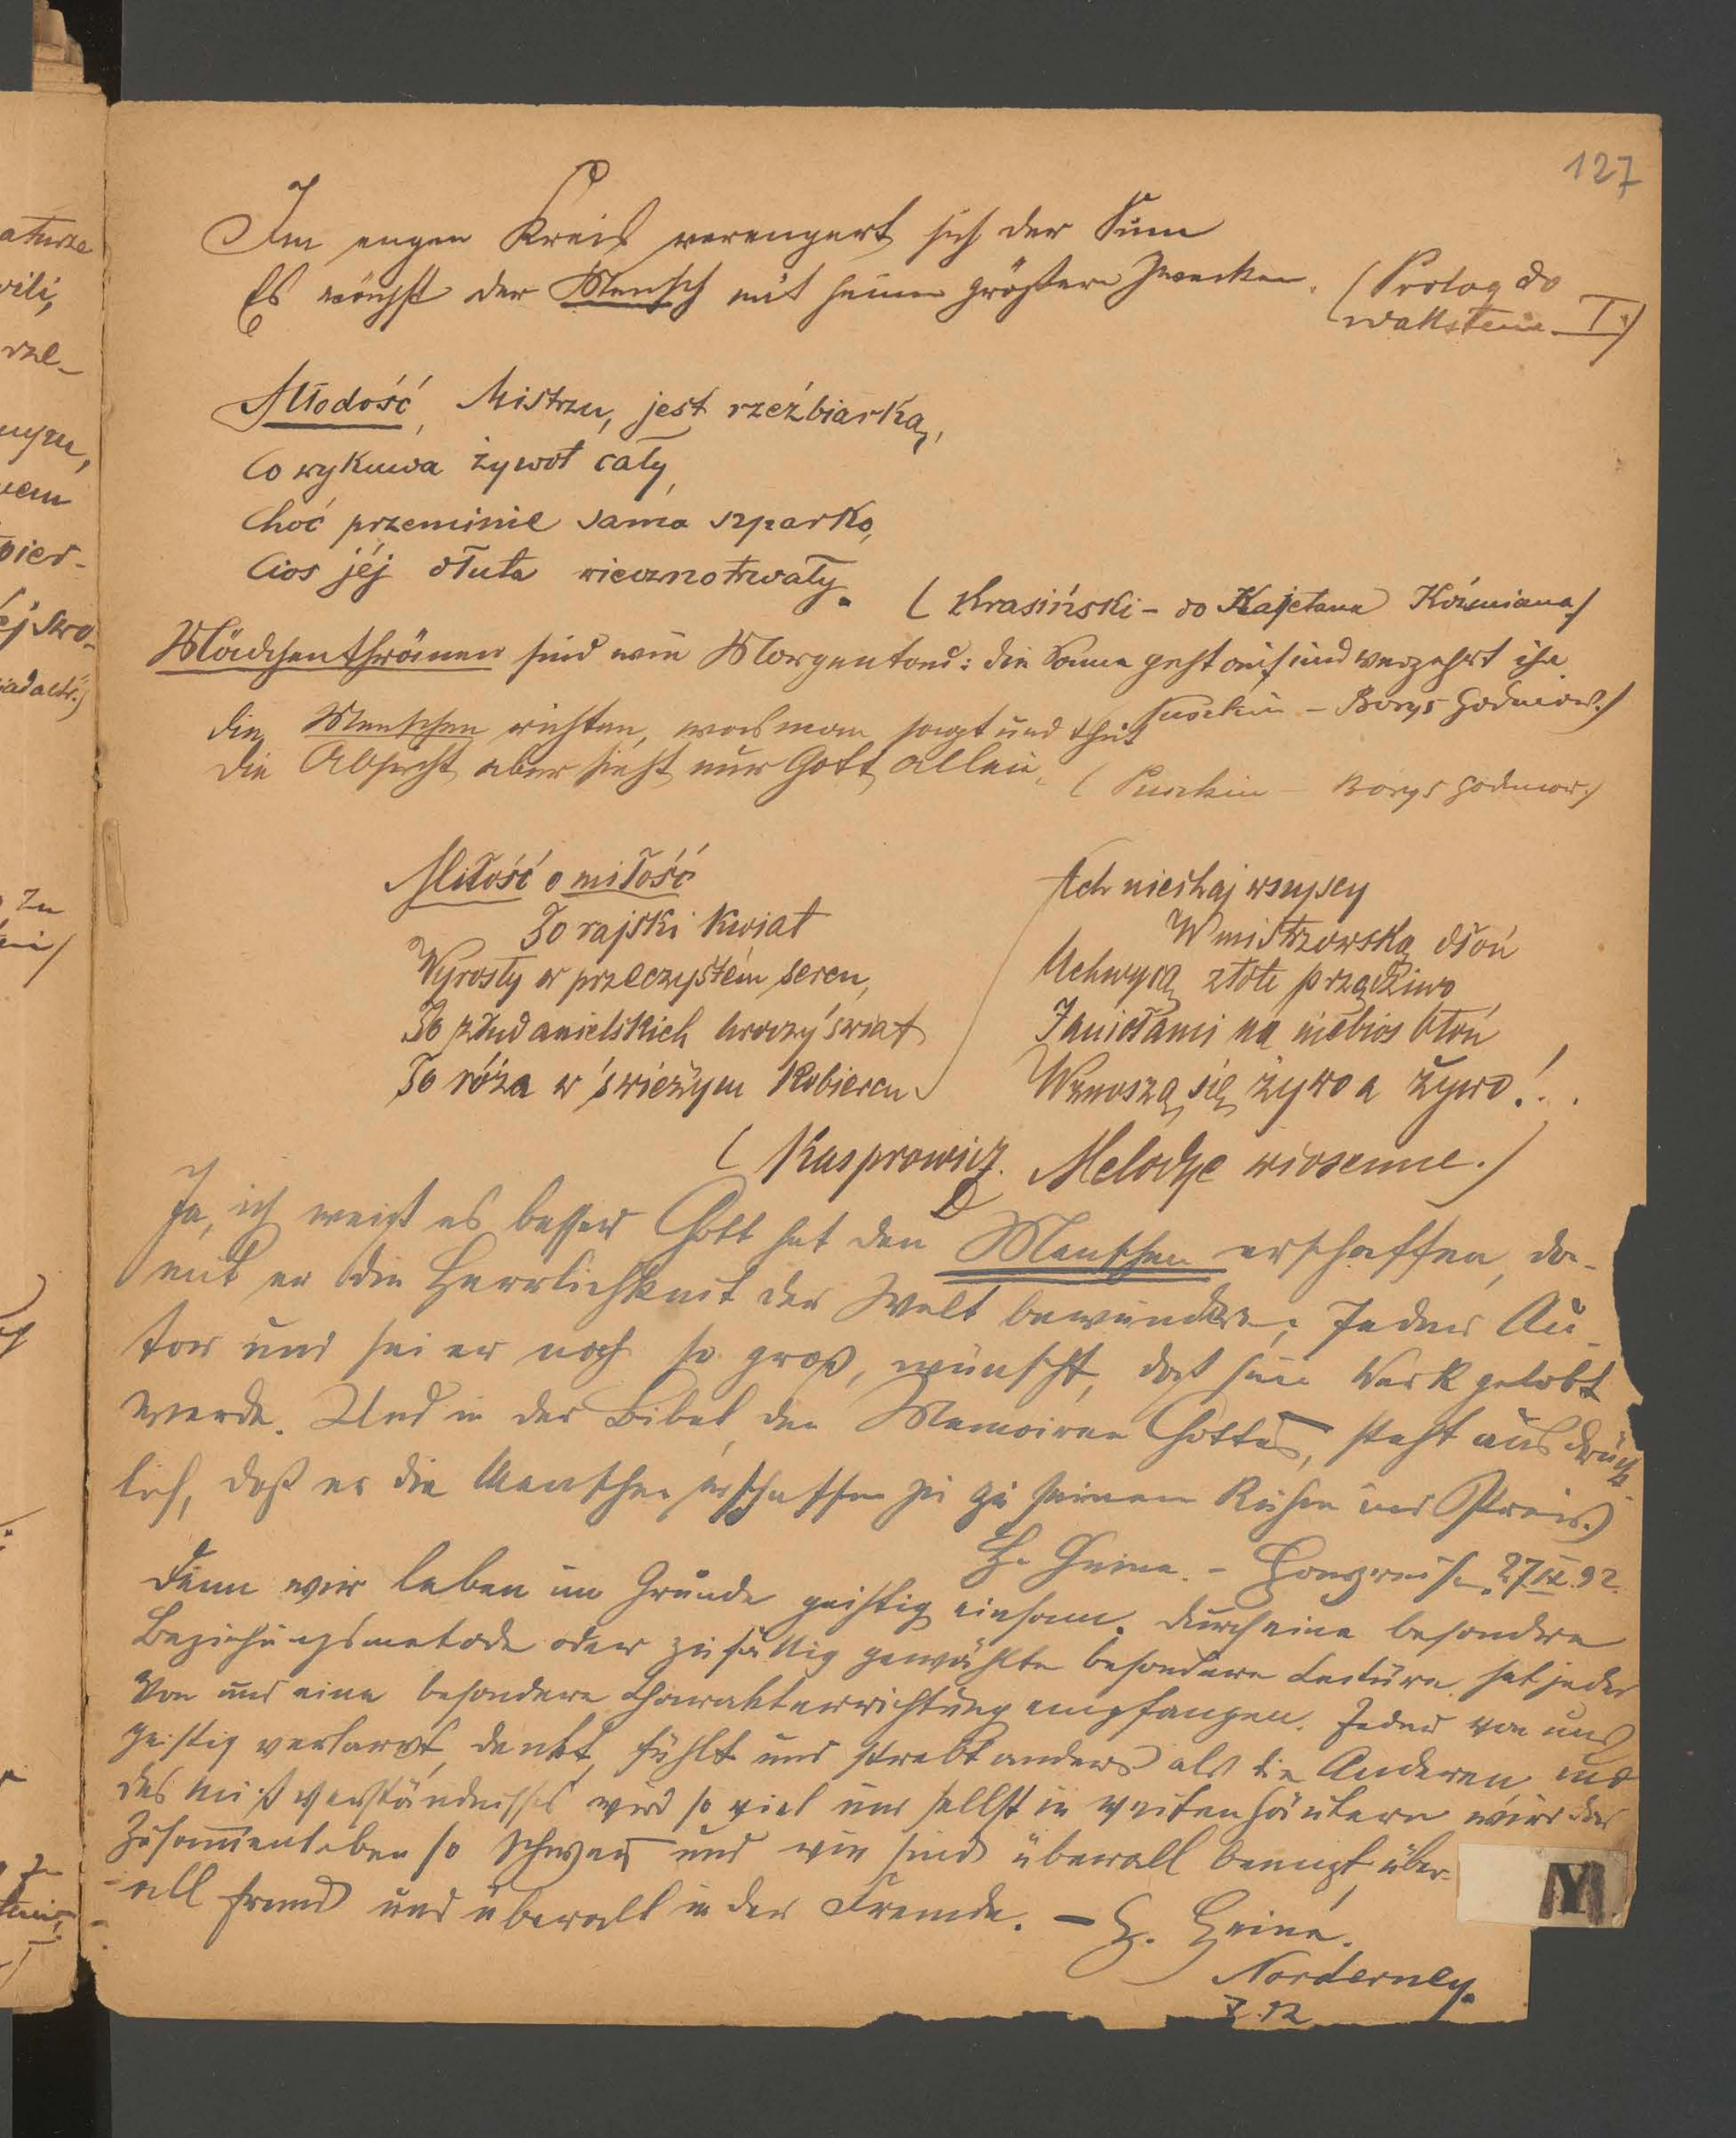 127
Im engen Kreis verengert sich der Sinn
Es wächst der Mensch mit seinen größern Zwecken. (Prolog do
Wallstein I.)
Młodość, Mistrzu, jest rzeźbiarką,
Co wykuwa żywot cały,
Choć przeminie sama szparko,
Cios jéj dłuta wiecznotrwały.
(Krasiński – do Kajetana Koźmiana.)
Mädchenthränen sind wie Morgentau: die Sonne geht auf und verzehrt ihn
Puszkin – Borys Godunow.)
Die Menschen richten, was man sagt und thut
Die Absicht aber sieht nur Gott allein.
(Puszkin – Borys Godunow.)
Miłość o miłość
To rajski kwiat
Wyrosły w przeczystém sercu,
To złud anielskich uroczy świat
To róża w świeżym kobiercu
Ach niechaj wszyscy
W mistrzowską dłoń
Uchwycą złote przędziwo
I aniołami na niebios błoń
Wznoszą się żywo a żywo!..
(Kasprowicz. Melodye wiosenne.)
Ja, ich weiß es besser Gott hat den Menschen erschaffen, da-
mit er die Herrlichkeit der Welt bewundere; Jeder Au-
tor und sei er noch so groß, wünscht, daß sein Werk gelobt
werde. Und in der Bibel den Memoiren Gottes, steht ausdrück-
lich, daß er die Menschen erschaffen zu seinem Ruhm und Preis.)
H. Heine. – Harzreise 27.IX.92.
Denn wir leben im Grunde geistig einsam. durch eine besondre
Beziehungsmetode oder zufällig gewählte besondere Lectüre hat jeder
von uns eine besondere Charakterrichtung empfangen. Jeder von uns
geistig verlarvt, denkt, fühlt und strebt anders als die Anderen und
des Mißverständnisses wird so viel und selbst in weiten Häusern wird das
Zusammenleben so schwer und wir sind überall beengt, über-
all fremd und überall in der Fremde. – H. Heine.
Norderney.
M